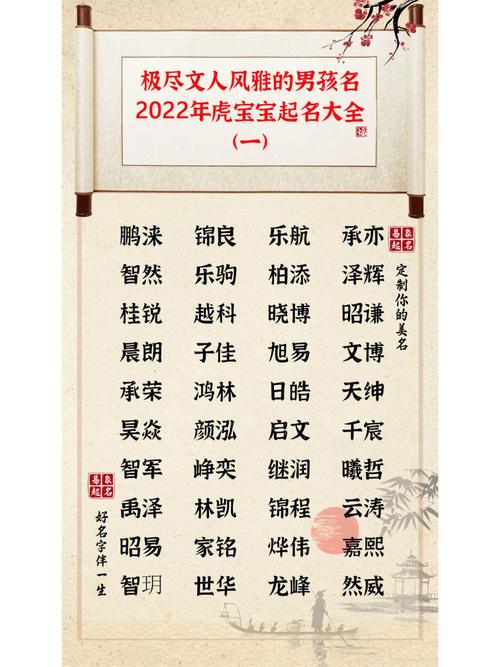 极尽文人风雅的男孩名
2022年虎宝宝起名大全
(一)
鹏涞 锦良 乐航 承亦
智然 乐驹 柏添 泽辉
桂锐 越科 晓博 昭谦
晨朗 子佳 旭易 文博
承荣 鸿林 日皓 天绅
昊焱 颜泓 启文 千宸
智军 峥奕 继润 曦哲
禹泽 林凯 锦程 云涛
昭易 家铭 烨伟 嘉熙
智玥 世华 龙峰 然威
易象
起名
定制你的美名
易象
起名
好名字伴一生